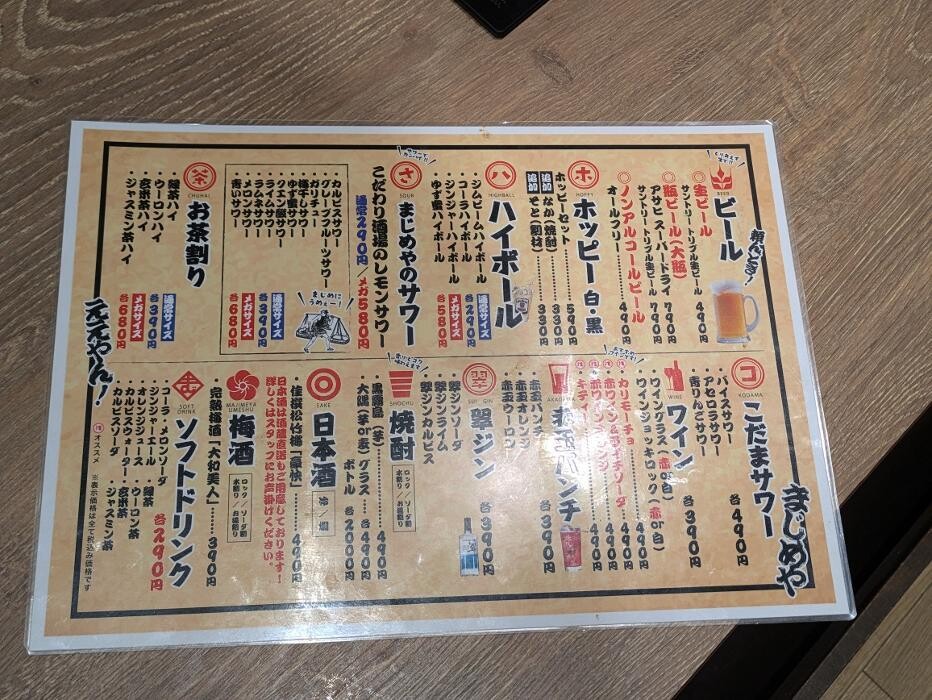 とりあえず
ビール
BEER
頼んどき！
○生ビール
サントリートリプル生ビール 490円
○瓶ビール(大瓶)
アサヒスーパードライ 790円
サントリートリプル生ビール 790円
○ノンアルコールビール
オールフリー 490円
ホ
HOPPY
ホッピー 白・黒
ホッピーセット 590円
追加 なか(焼酎) 330円
追加 そと(割材) 330円
ハ
HIGHBALL
ハイボール
・ジムビームハイボール
・コーラハイボール
・ジンジャーハイボール
・ゆず蜜ハイボール
通常サイズ 各290円
メガサイズ 各580円
さ
SOUR
まじめやのサワー
こだわり酒場のレモンサワー
通常290円/メガ580円
・カルピスサワー
・グレープフルーツサワー
・ガリチュー
・梅干しサワー
・ゆず蜜サワー
・クエン酸サワー
・ライムサワー
・ラムネサワー
・メロンサワー
・青いサワー
通常サイズ 各390円
メガサイズ 各680円
まじめに
うめぇー！
茶
CHUHAI
お茶割り
・緑茶ハイ
・ウーロンハイ
・玄米茶ハイ
・ジャスミン茶ハイ
通常サイズ 各390円
メガサイズ 各680円
ええやん！
コ
KODAMA
こだまサワー
・バイスサワー
・アセロラサワー
・青りんごサワー
各490円
WINE
ワイン
・ワイングラス(赤or白) 各390円
・ワインジョッキロック(赤or白) 各490円
カリモーチョ 490円
AKADAMA
赤玉パンチ
・赤玉パンチ
・赤玉オレンジ
・赤玉ウーロン
各390円
翠
SUI GIN
翠ジン
・翠ジンソーダ
・翠ジンライム
・翠ジンカルピス
各390円
SHOCHU
焼酎
ロック/ソーダ割
水割り/お湯割り
・黒霧島(芋) 490円
・大隅(芋or麦)グラス 各490円
ボトル 各2000円
SAKE
日本酒
冷/燗
・佳撰松竹梅「豪快」 490円
日本酒は酒蔵直送もご用意しております！
詳しくはスタッフにお声掛けください。
MAJIMEYA UMESHU
梅酒
ロック/ソーダ割
水割り/お湯割り
・完熟梅酒「大和美人」 390円
SOFT DRINK
ソフトドリンク
・コーラ・メロンソーダ
・ジンジャーエール
・オレンジジュース
・カルピスウォーター
・カルピスソーダ
・緑茶
・ウーロン茶
・玄米茶
・ジャスミン茶
各290円
オススメ
※表示価格は全て税込み価格です
まじめや